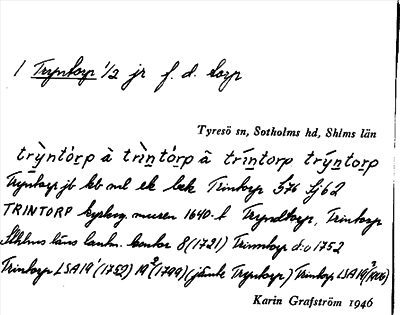 1 Tryntorp 1/2 jr f. d. torp
Tyresö sn, Sotholms hd, Shlms län
trỳntórp à trìntórp à tríntorp trýntorp
Tryntorp jb kb ml ek Trintorp S76 Gj62
TRINTORP 1640-t Tryndtorp, Trintorp
Sthlms läns lantm. kontor 8(1721) Trinntorp d:o 1752
Trintorp LSA 19¹(1752) 19²(1799) (jämte Tryntorp) Trintorp LSA 19³(1906)
Karin Grafström 1946